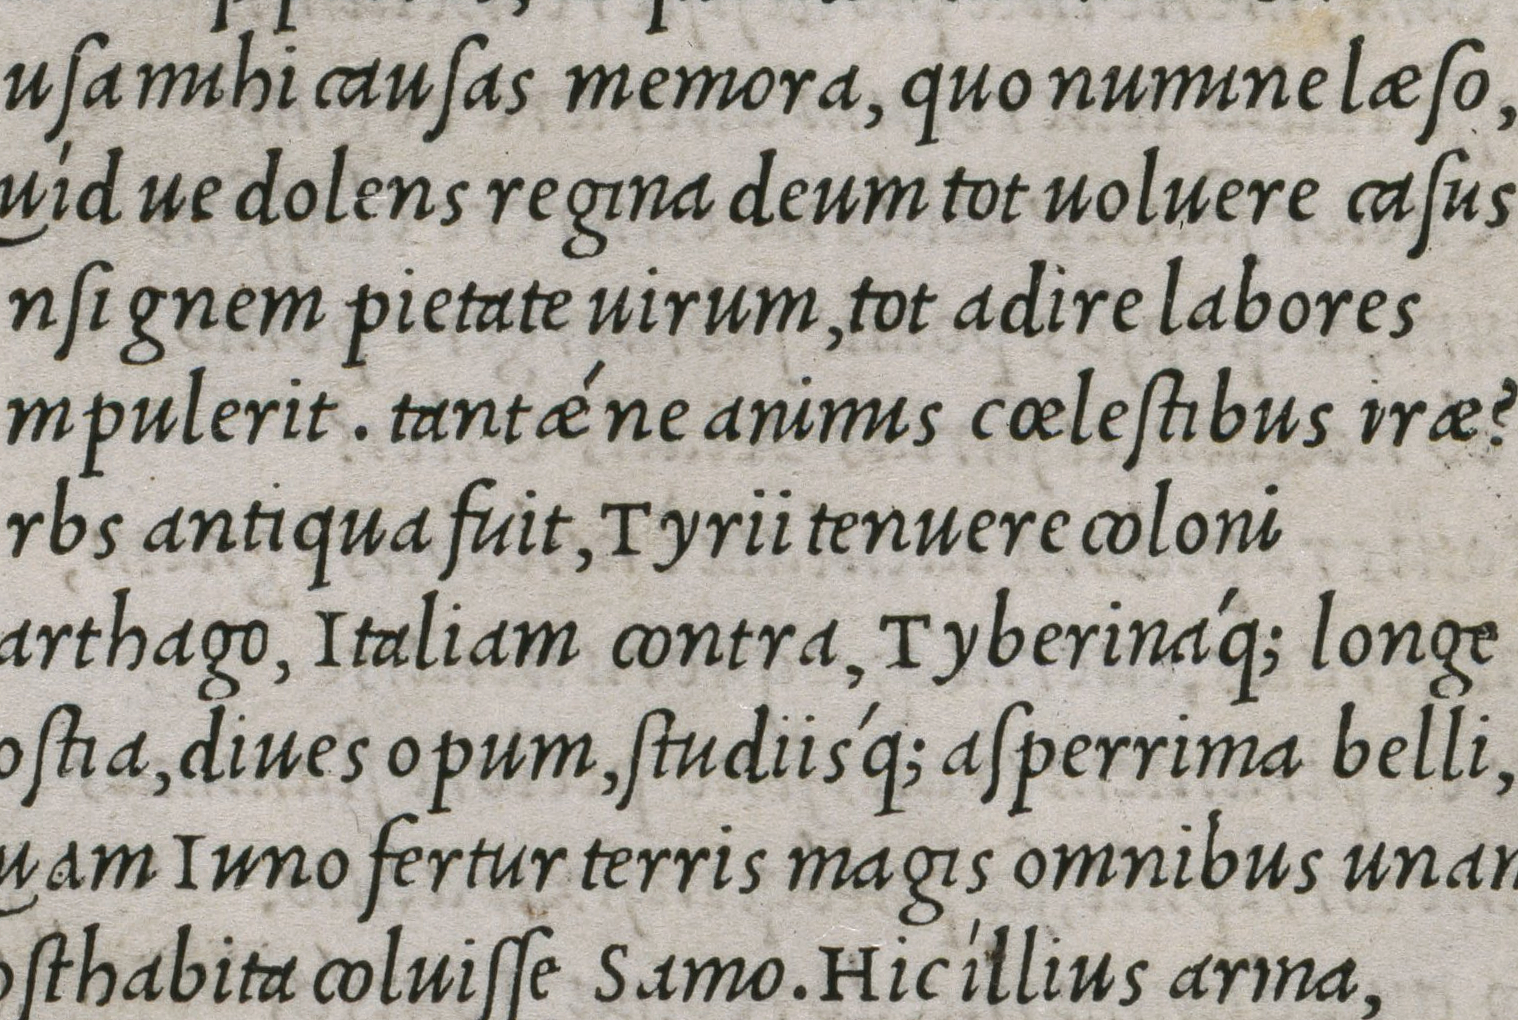 uſa mihi cauſas memora, quo numine læſo,
uíd ue dolens regina deum tot uoluere caſus
nſignem pietate uirum, tot adire labores
mpulerit. tantǽ ne animis cœleſtibus iræ?
rbs antiqua fuit, Tyrii tenuere coloni
arthago, Italiam contra, Tyberináq; longe
oſtia, diues opum, ſtudiisq́; aſperrima belli,
uam Iuno fertur terris magis omnibus unam
oſthabita coluiſſe Samo. Hic íllius arma,